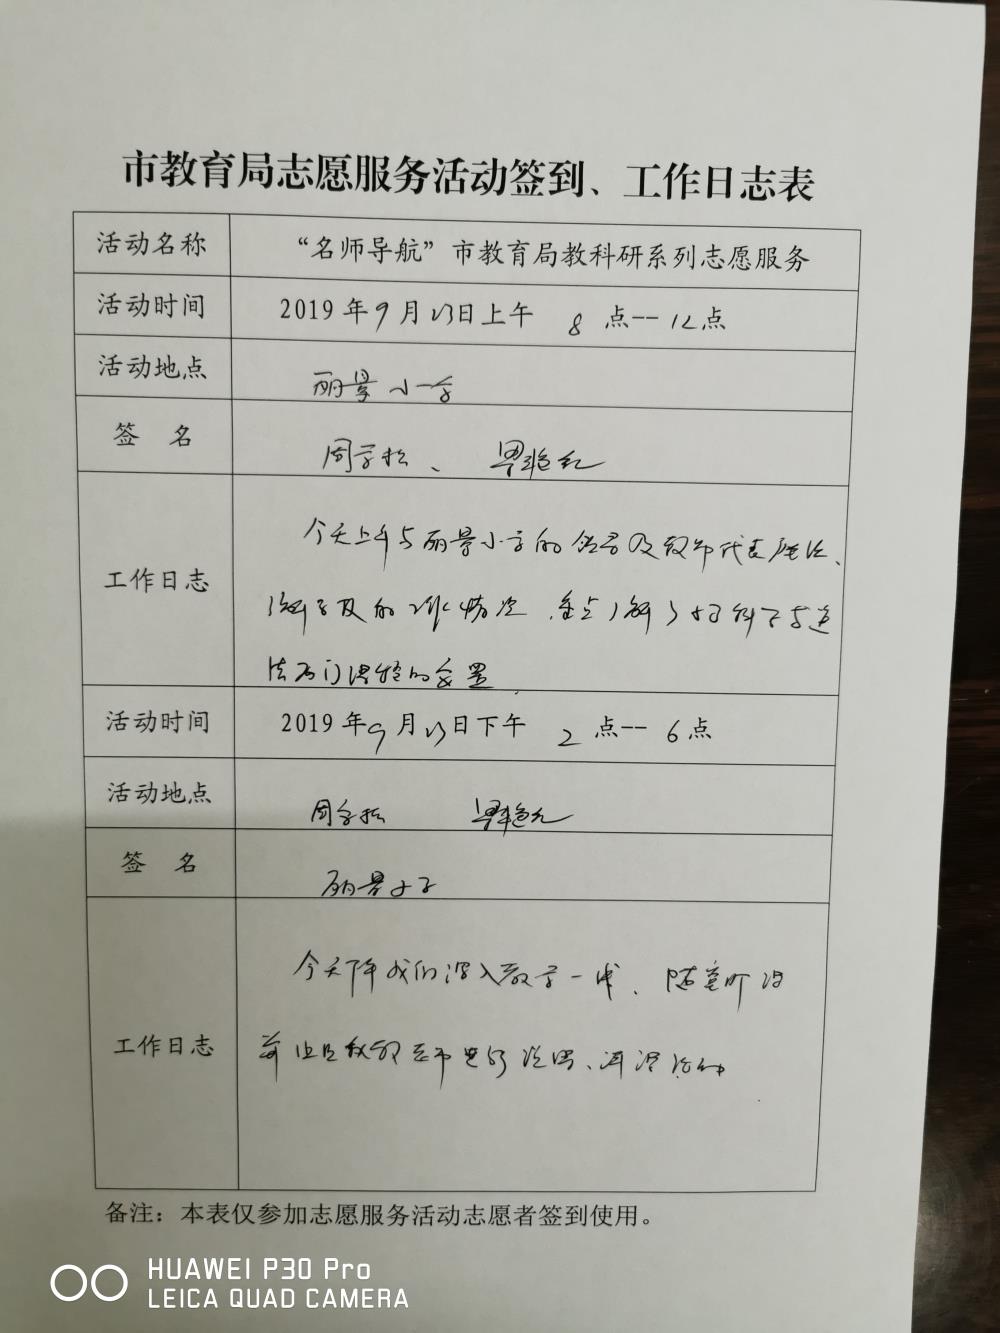 市教育局志愿服务活动签到、工作日志表
活动名称 “名师导航”市教育局教科研系列志愿服务
活动时间 2019年9月23日上午 8 点--12点
活动地点 丽景小学
签 名 周学松、
今天上午与丽景小学的领导及教师代表座谈、
工作日志
了解学校的 情况,重点了解了 科学与道
法两门课程的设置
活动时间 2019年9月23日下午 2 点--6点
活动地点 周学松
签 名 丽景小学
今天下午我们深入教学一线、随堂听课
工作日志
并 教师进行
备注:本表仅参加志愿服务活动志愿者签到使用。
HUAWEI P30 Pro
LEICA QUAD CAMERA